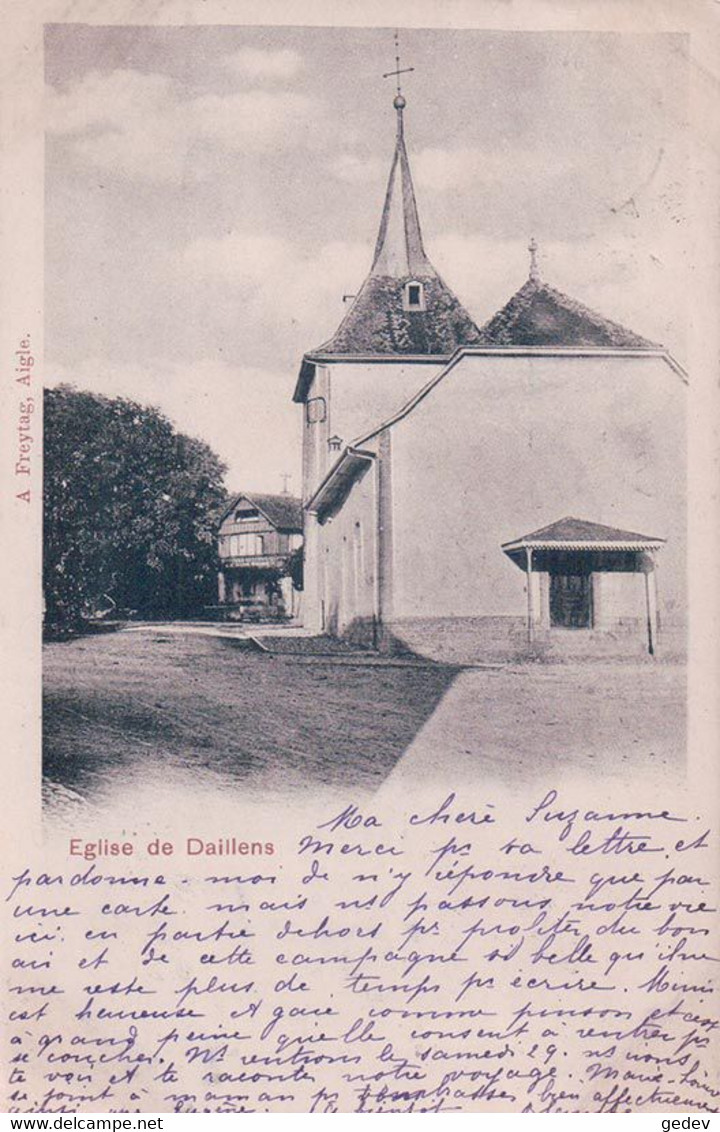 A Freytag, Aigle.
Eglise de Daillens
Ma chère Suzanne.
Merci pr ta lettre et
pardonne-moi de n'y répondre que par
une carte mais ns passons notre vie
ici en partie dehors pr profiter du bon
air et de cette campagne si belle qu'il ne
me reste plus de temps pr écrire. Mimi
est heureuse & gaie comme pinson et c'est
à grand peine qu'elle consent à rentrer pr
se coucher. Ns rentrons le samedi 29. ns
te voir et te raconter notre voyage. Marie-Louise
se joint à maman pr bien affectueusement
ainsi que Eugène. A bientôt
gedev
delcampe.net